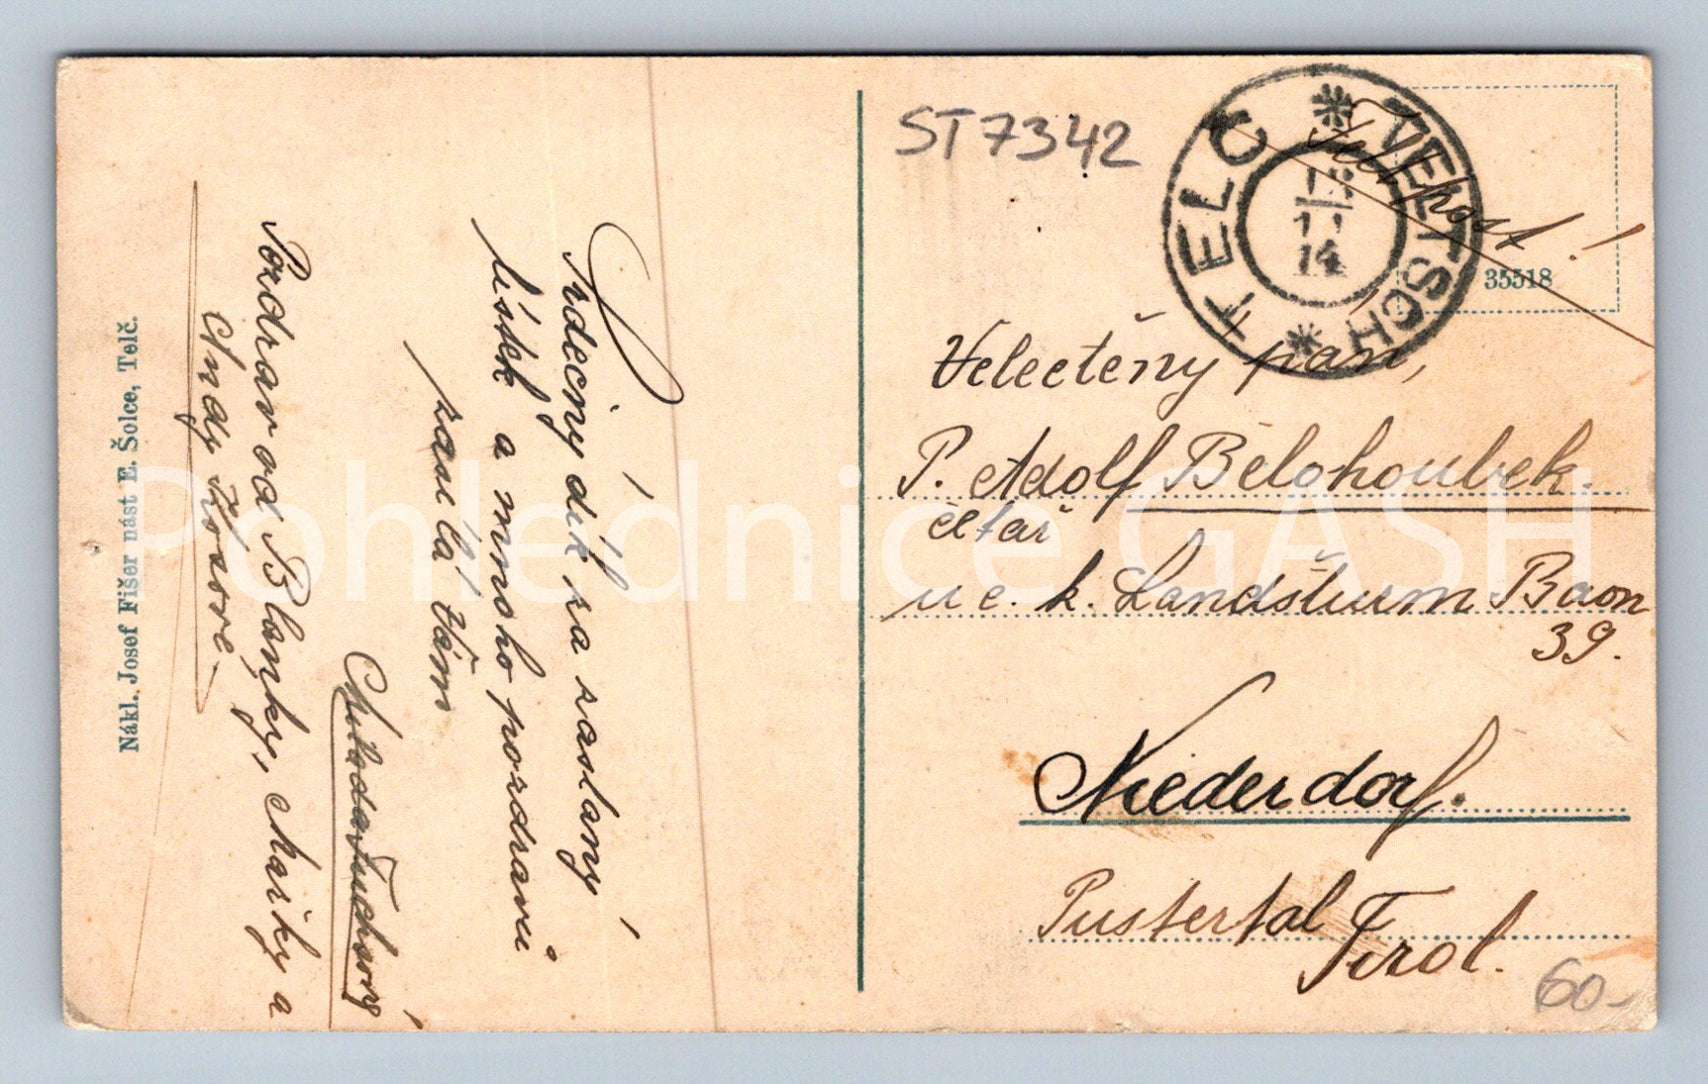 Srdečný dík za zaslaný
lístek a mnoho pozdravů
zasílá Vám
Pozdrav od Blanky, Mařky a
Andy
Nákl. Josef Fišer nást E. Šolce, Telč.
ST7342
TELČ * TELTSCH *
11
14
Feldpost!
35518
Velectěný pán,
P. Adolf Bělohoubek.
četař
u c. k. Landšturm Baon
39.
Niederdorf.
Pustertal Tirol.
60-
Pohlednice GASH